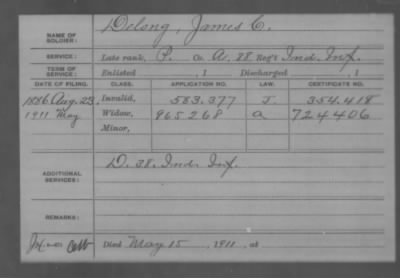 NAME OF SOLDIER: Delong, James C.
SERVICE: Late rank, P. Co. A, 88 Reg't Ind. Inf.
TERM OF SERVICE: Enlisted , 1 Discharged , 1
DATE OF FILING. CLASS. APPLICATION NO. LAW. CERTIFICATE NO.
1886 Aug. 23. Invalid, 583.377 J 354.418
1911 May Widow, 965268 a 724406
Minor,
ADDITIONAL SERVICES: D. 38. Ind. Inf.
REMARKS:
Died May 15, 1911, at